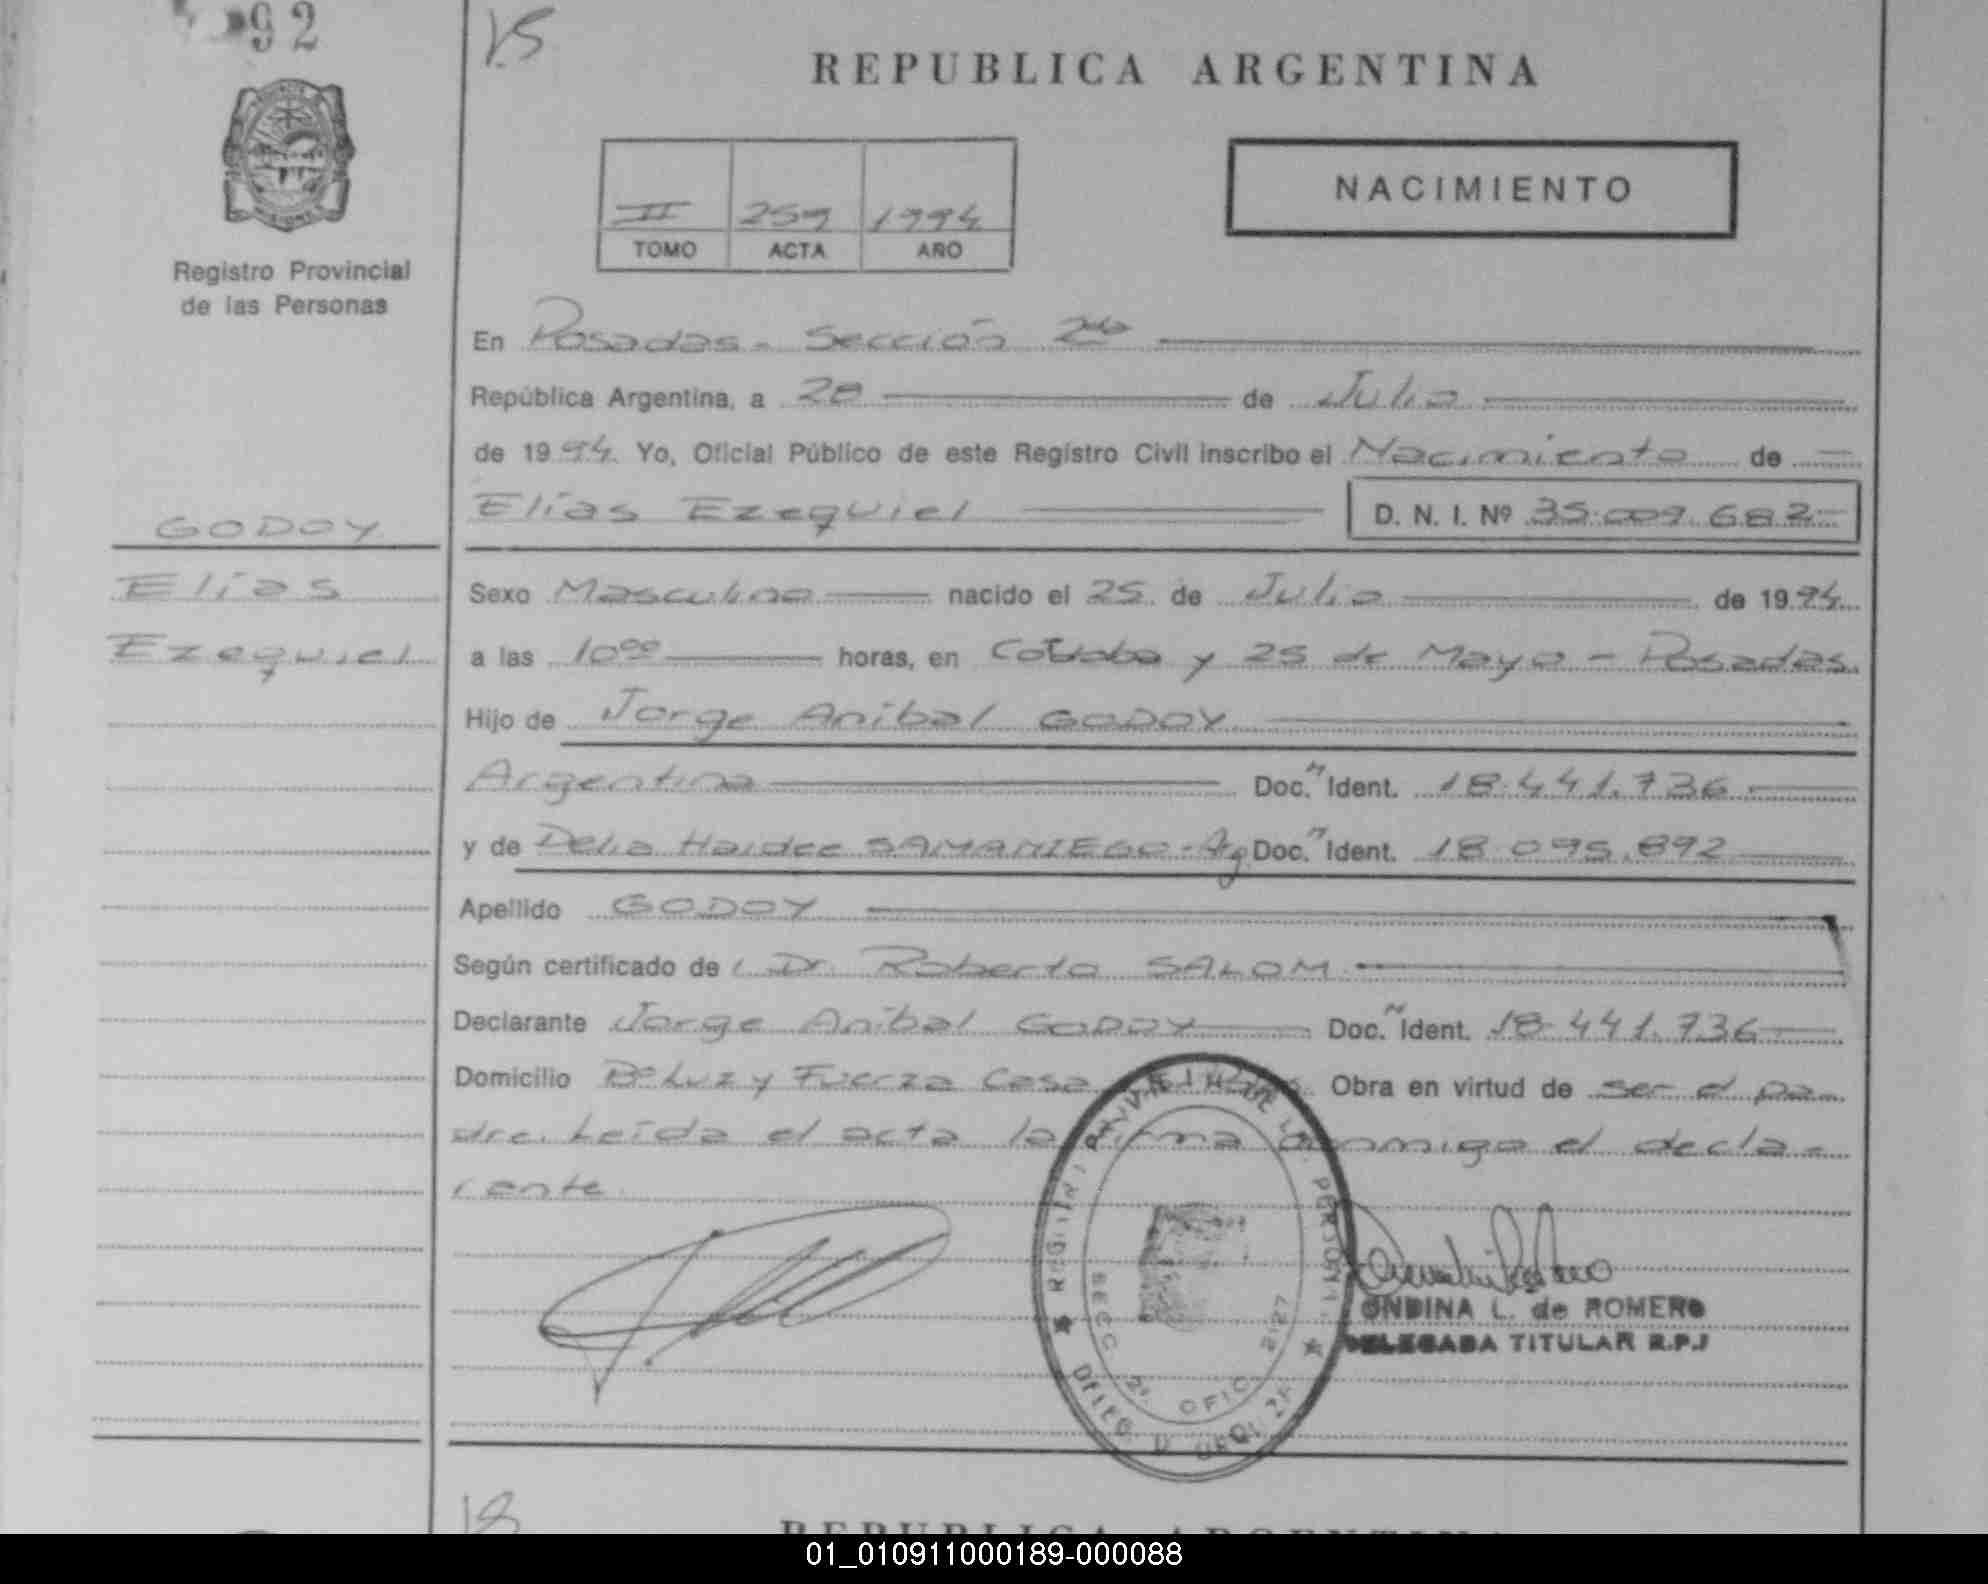 92
15
REPUBLICA ARGENTINA
II 259 1994
TOMO ACTA AÑO
NACIMIENTO
Registro Provincial
de las Personas
En Posadas - Sección 2da
República Argentina, a 28 de Julio
de 1994. Yo, Oficial Público de este Registro Civil inscribo el Nacimiento de
Elías Ezequiel D. N. I. Nº 35.009.682
GODOY
Elías
Ezequiel
Sexo Masculino nacido el 25 de Julio de 1994
a las 10⁰⁰ horas, en Córdoba y 25 de Mayo - Posadas.
Hijo de Jorge Aníbal GODOY
Argentina Doc. Ident. 18.441.736
y de Delia Haidee SAMANIEGO - Ag. Doc. Ident. 18.095.892
Apellido GODOY
Según certificado de Dr. Roberto SALOM
Declarante Jorge Aníbal GODOY Doc. Ident. 18.441.736
Domicilio Bº Luz y Fuerza Casa Obra en virtud de ser el pa-
dre. Leída el acta la firma conmigo el decla-
rante.
SECC. 2ª OFIC. 2127
ONDINA L. de ROMERO
DELEGADA TITULAR R.P.J
18
REPUBLICA ARGENTINA
01_010911000189-000088